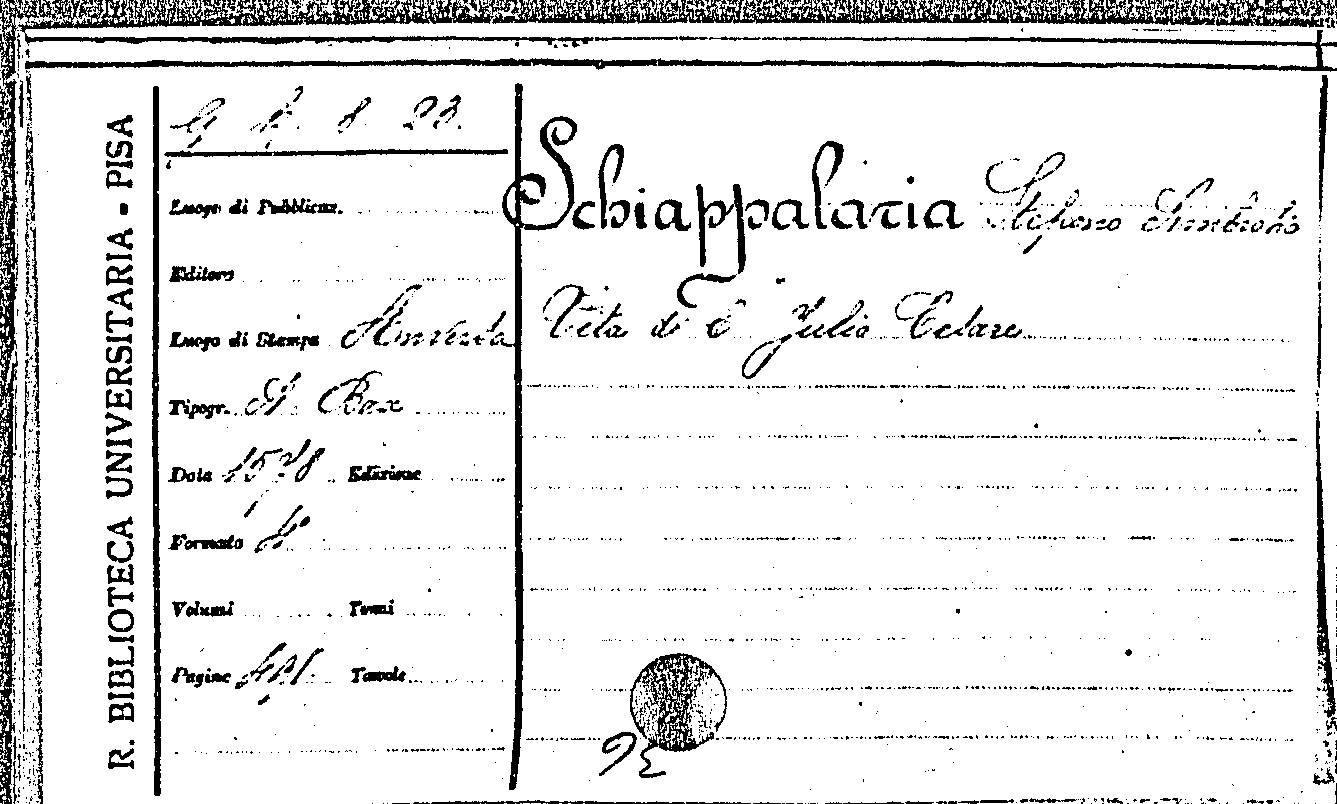 R. BIBLIOTECA UNIVERSITARIA - PISA
8 23.
Luogo di Pubblicaz.
Editore
Luogo di Stampa Anversa
Tipogr. A. Bax
Data 1578 Edizione
Formato 4°
Volumi Tomi
Pagine Tavole
Schiappalaria Stefano Ambrosio
Vita di C. Julio Cesare